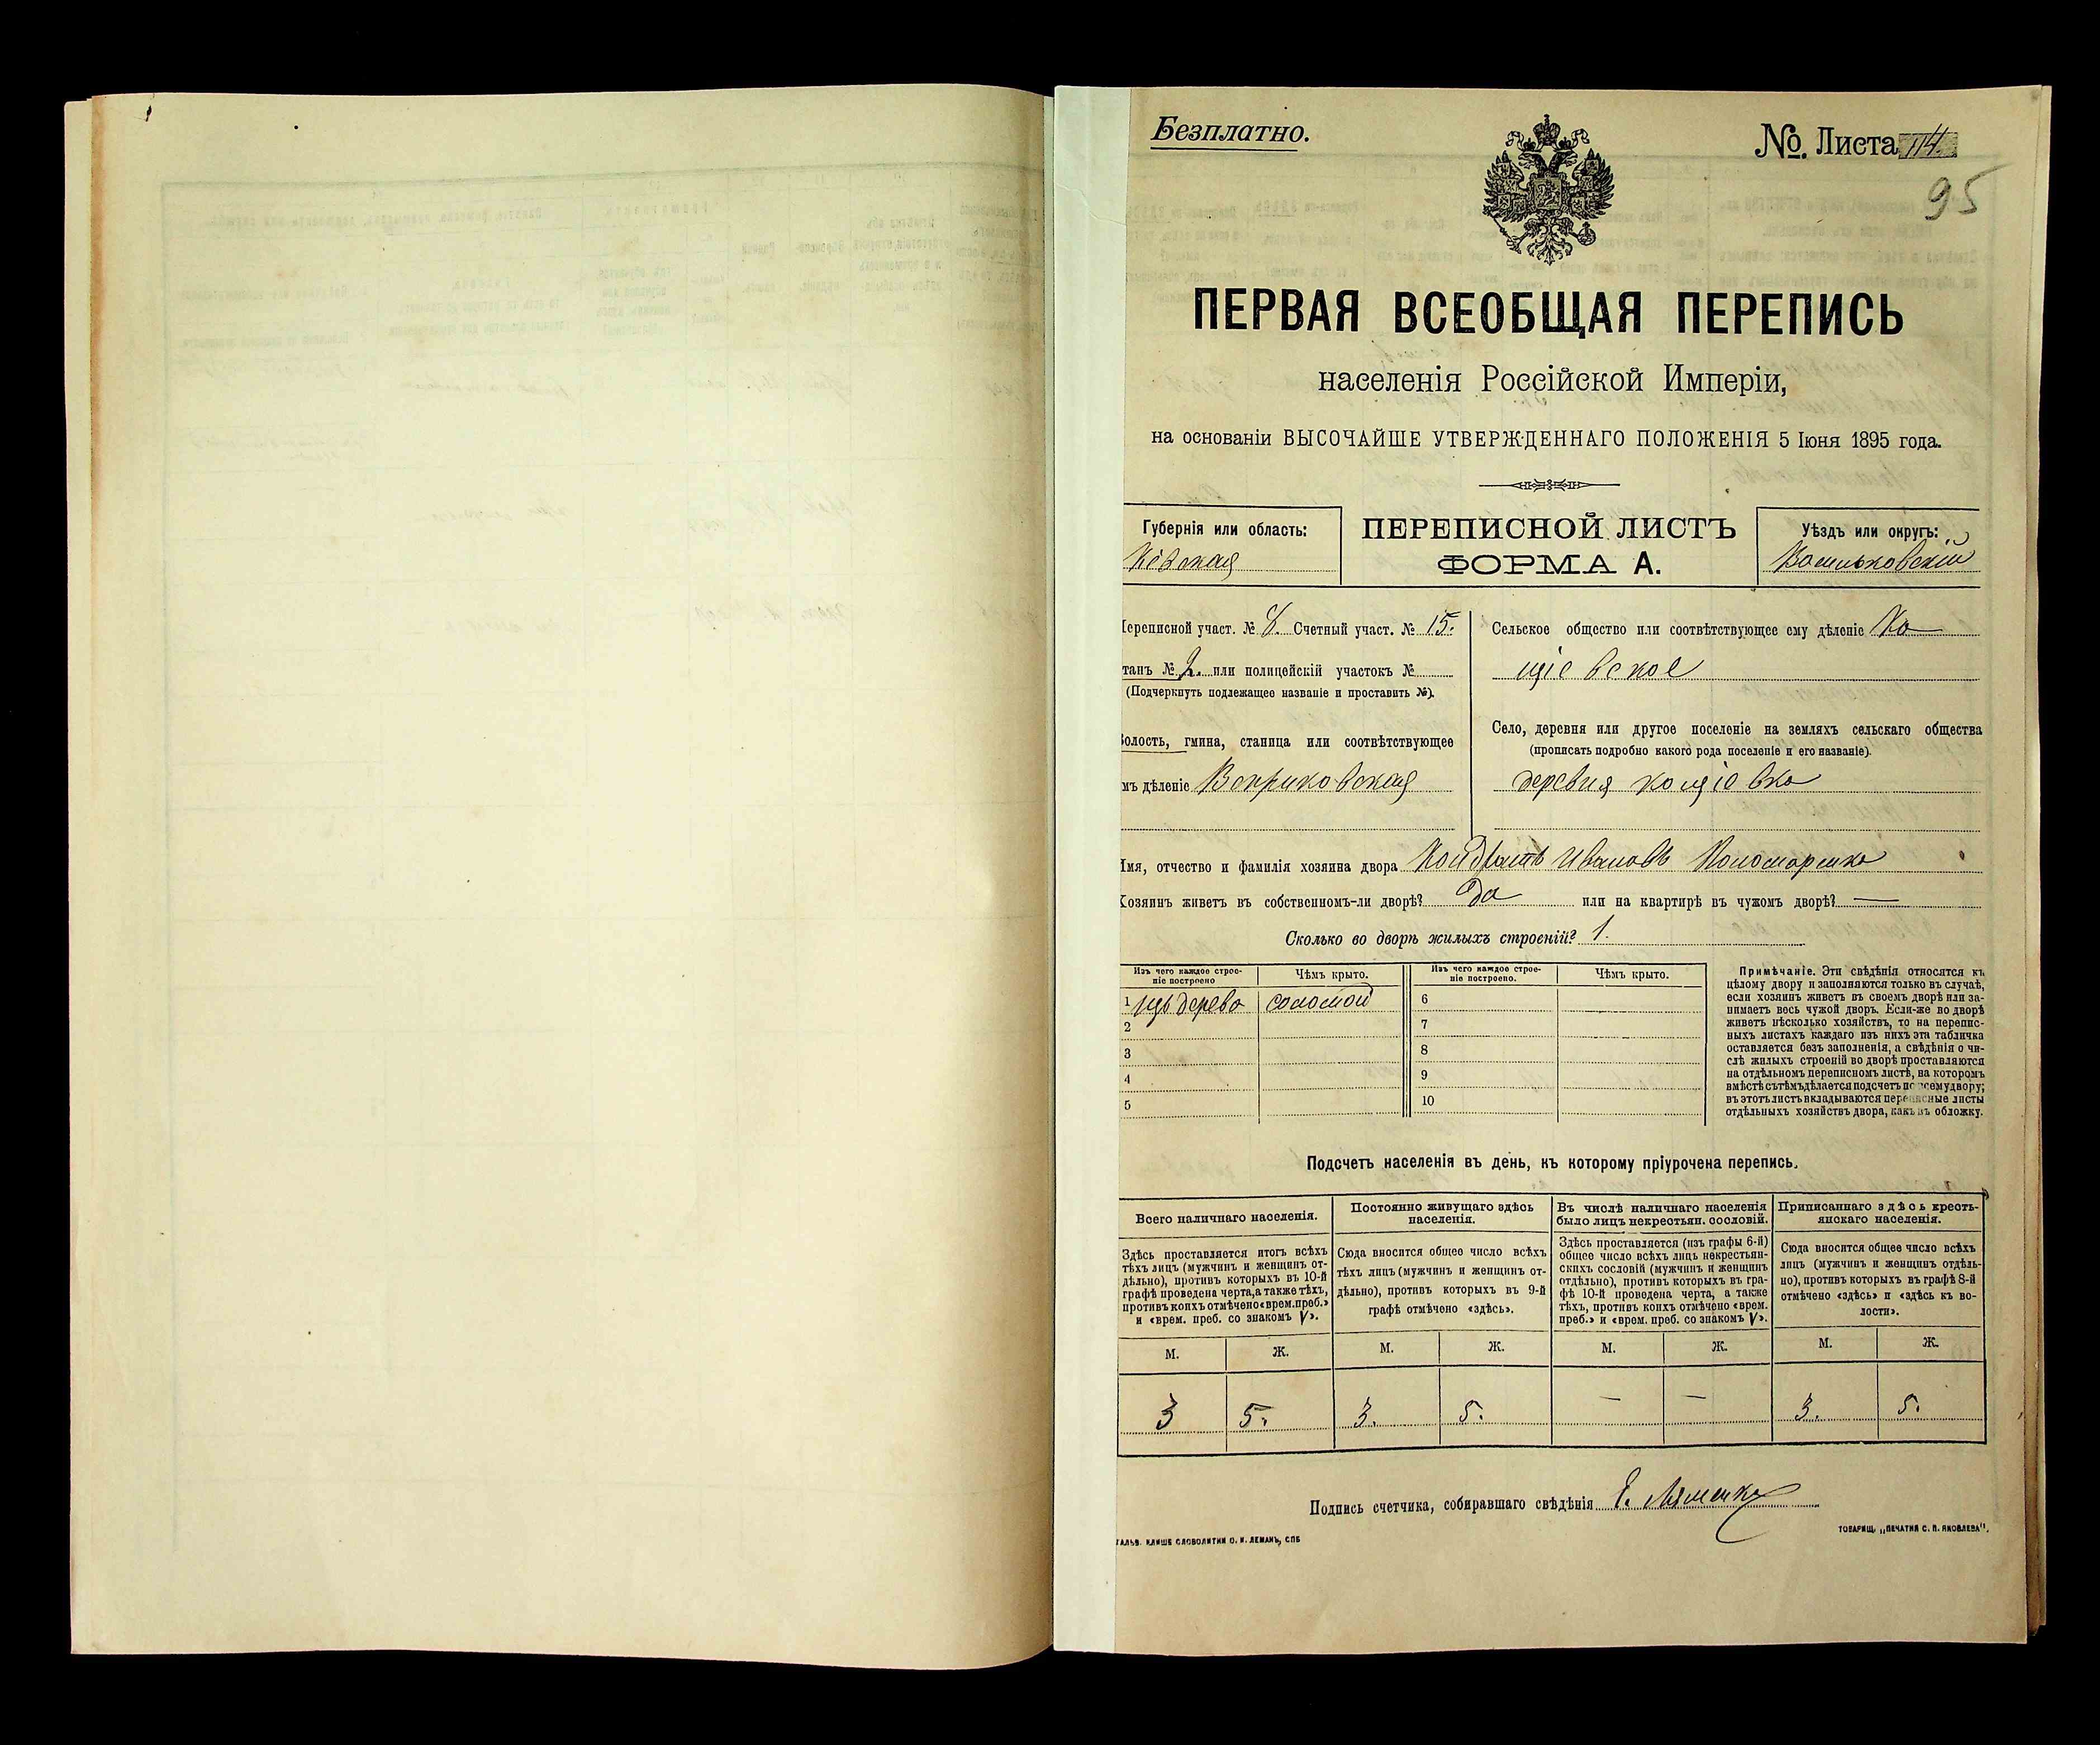 Безплатно.
№. Листа 114.
95
ПЕРВАЯ ВСЕОБЩАЯ ПЕРЕПИСЬ
населенія Россійской Имперіи,
на основаніи ВЫСОЧАЙШЕ УТВЕРЖДЕННАГО ПОЛОЖЕНІЯ 5 Іюня 1895 года.
Губернія или область:
Кіевская
ПЕРЕПИСНОЙ ЛИСТЪ
ФОРМА А.
Уѣздъ или округъ:
Васильковскій
Переписной участ. № 8. Счетный участ. № 15.
танъ № 2. или полицейскій участокъ №
(Подчеркнуть подлежащее названіе и проставить №).
Волость, гмина, станица или соотвѣтствующее
мъ дѣленіе Веприковская
Сельское общество или соотвѣтствующее ему дѣленіе Ко
щіевское
Село, деревня или другое поселеніе на земляхъ сельскаго общества
(прописать подробно какого рода поселеніе и его названіе).
деревня кощіевка
Имя, отчество и фамилія хозяина двора Кондратъ Ивановъ Пономаренко
Хозяинъ живетъ въ собственномъ-ли дворѣ? да или на квартирѣ въ чужомъ дворѣ? —
Сколько во дворѣ жилыхъ строеній? 1.
Изъ чего каждое строе-
ніе построено
Чѣмъ крыто.
Изъ чего каждое строе-
ніе построено.
Чѣмъ крыто.
1 изъ дерева соломой 6
2 7
3 8
4 9
5 10
Примѣчаніе. Эти свѣдѣнія относятся къ
цѣлому двору и заполняются только въ случаѣ,
если хозяинъ живетъ въ своемъ дворѣ или за-
нимаетъ весь чужой дворъ. Если-же во дворѣ
живетъ нѣсколько хозяйствъ, то на перепис-
ныхъ листахъ каждаго изъ нихъ эта табличка
оставляется безъ заполненія, а свѣдѣнія о чи-
слѣ жилыхъ строеній во дворѣ проставляются
на отдѣльномъ переписномъ листѣ, на которомъ
вмѣстѣ съ тѣмъ дѣлается подсчетъ по всему двору;
въ этотъ листъ вкладываются переписные листы
отдѣльныхъ хозяйствъ двора, какъ въ обложку.
Подсчетъ населенія въ день, къ которому пріурочена перепись.
Всего наличнаго населенія.
Здѣсь проставляется итогъ всѣхъ
тѣхъ лицъ (мужчинъ и женщинъ от-
дѣльно), противъ которыхъ въ 10-й
графѣ проведена черта, а также тѣхъ,
противъ коихъ отмѣчено «врем. преб.»
и «врем. преб. со знакомъ V».
Постоянно живущаго здѣсь
населенія.
Сюда вносится общее число всѣхъ
тѣхъ лицъ (мужчинъ и женщинъ от-
дѣльно), противъ которыхъ въ 9-й
графѣ отмѣчено «здѣсь».
Въ числѣ наличнаго населенія
было лицъ некрестьян. сословій.
Здѣсь проставляется (изъ графы 6-й)
общее число всѣхъ лицъ некрестьян-
скихъ сословій (мужчинъ и женщинъ
отдѣльно), противъ которыхъ въ гра-
фѣ 10-й проведена черта, а также
тѣхъ, противъ коихъ отмѣчено «врем.
преб.» и «врем. преб. со знакомъ V».
Приписаннаго здѣсь кресть-
янскаго населенія.
Сюда вносится общее число всѣхъ
лицъ (мужчинъ и женщинъ отдѣль-
но), противъ которыхъ въ графѣ 8-й
отмѣчено «здѣсь» и «здѣсь къ во-
лости».
М. Ж. М. Ж. М. Ж. М. Ж.
3 5. 3. 5. — — 3. 5.
Подпись счетчика, собиравшаго свѣдѣнія
ГАЛЬВ. КЛИШЕ СЛОВОЛИТНИ О. И. ЛЕМАНЪ, СПБ
ТОВАРИЩ. „ПЕЧАТНЯ С. П. ЯКОВЛЕВА".